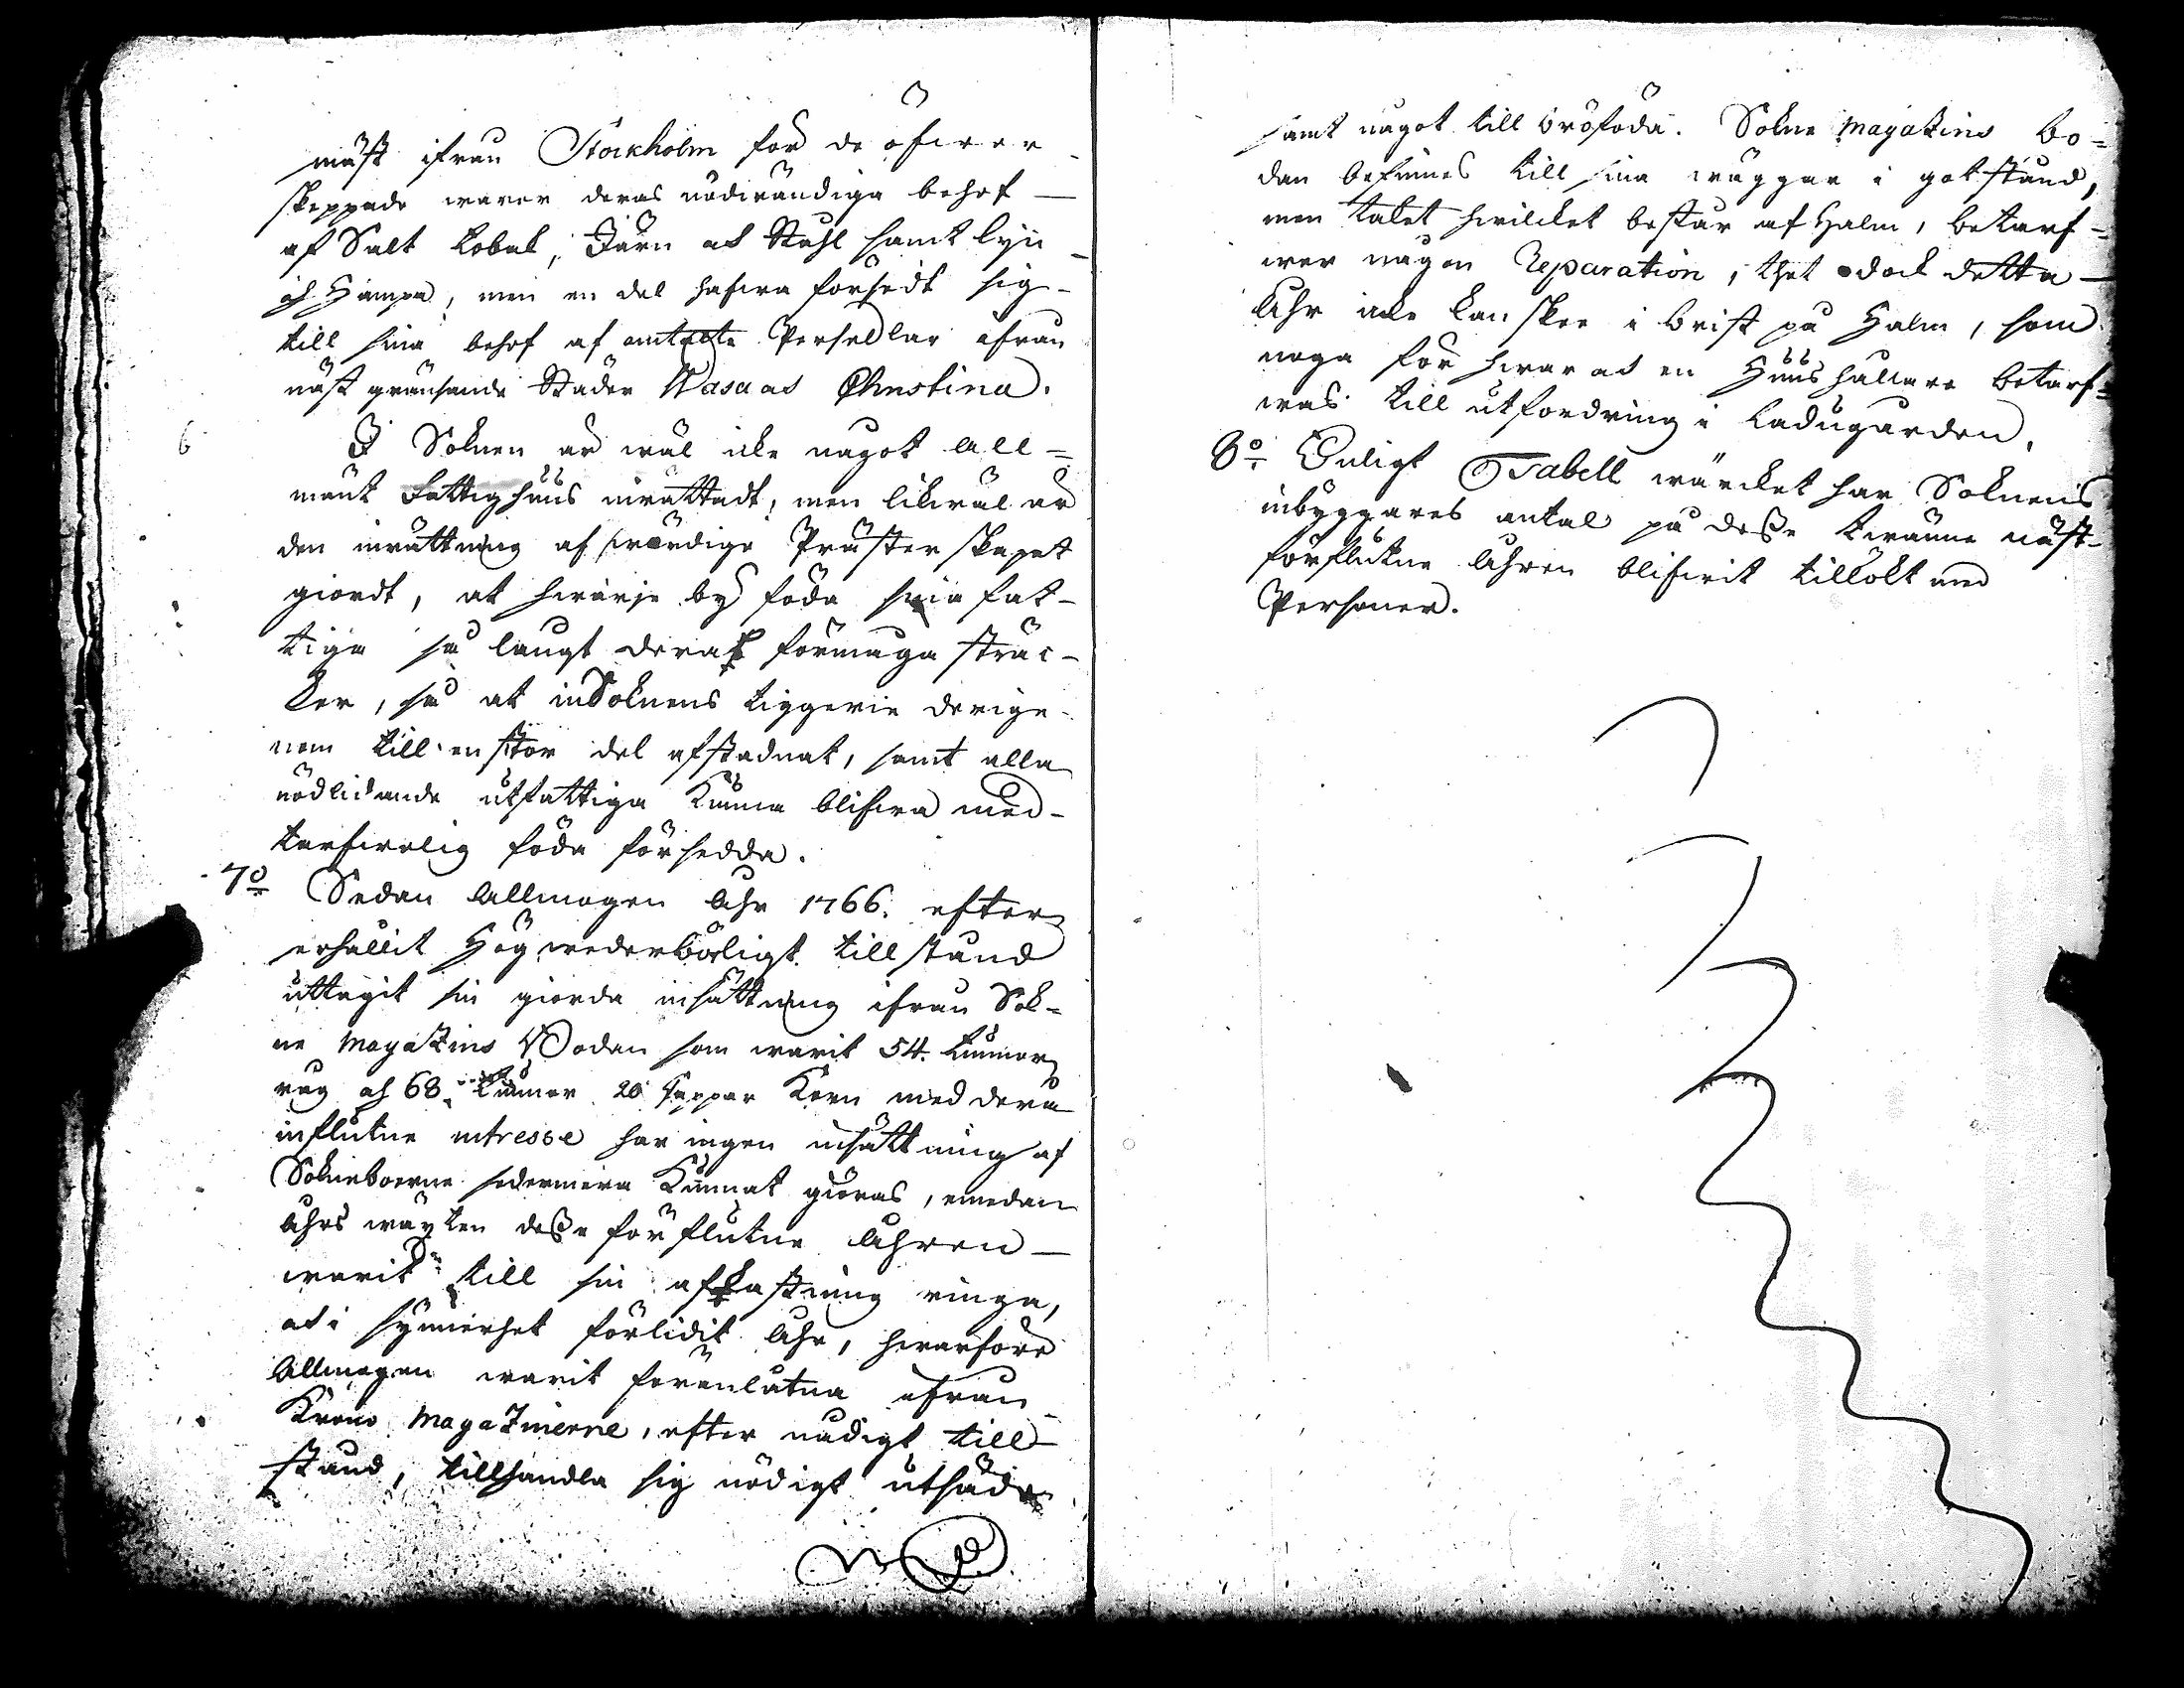 mäst ifrån Stockholm för de öfwer-
skeppade waror deras nödwändiga behof
af Salt Tobak, Järn ok Stahl samt Lijn
och Hampa, men en del hafwa försedt sig
till sina behof af omtalte Persedlar ifrån
näst gränsande Städer Wasa ok Christina.
6
I Soknen är wäl icke något all=
mänt Fattighuus inrättadt, men likwäl är
den inrättning af wördige Prästerskapet
giordt, at hwarje by föda sina fat-
tiga så långt deras förmåga sträc-
ker, så at in Soknens tiggerie derige-
nom till en stor del afstadnat, samt alla
nödlidande utfattiga kunna blifwa med
tarfwelig föda försedda.
7o Sedan Allmogen Åhr 1766. efter
erhållit Hög wederbörligt tillstånd
uttagit sin giorda insättning ifrån Sok=
ne Magazins Boden som warit 54. Tunnor
råg och 68. Tunnor 20 kappar Korn med dera
influtne intresse har ingen insättning af
Sokneboerne sedermera kunnat giöras, emedan
åhrs wäxten desse förflutne åhren
warit till sin afkastning ringa,
ok i synnerhet förlidit åhr, hwarföre
Allmogen warit föranlåtna ifrån
Krono Magazinerne, efter nådigt till-
stånd, tillhandla sig nödigt utsäde
samt något till brödföda. Sokne Magazins bo=
dan befinnes till sina wäggar i godt stånd,
men taket hwilcket består af Halm, betarf=
wer någon Reparation, thet dock detta
Åhr icke kan skee i brist på Halm, som
noga för hwar ok en Huushållare betarf=
was till utfordring i Ladugården.
8o. Enligt Tabell wärcket har Soknens
inbyggares antal på desse twänne näst
förflutne åhren blifwit tillökt med
Personer.